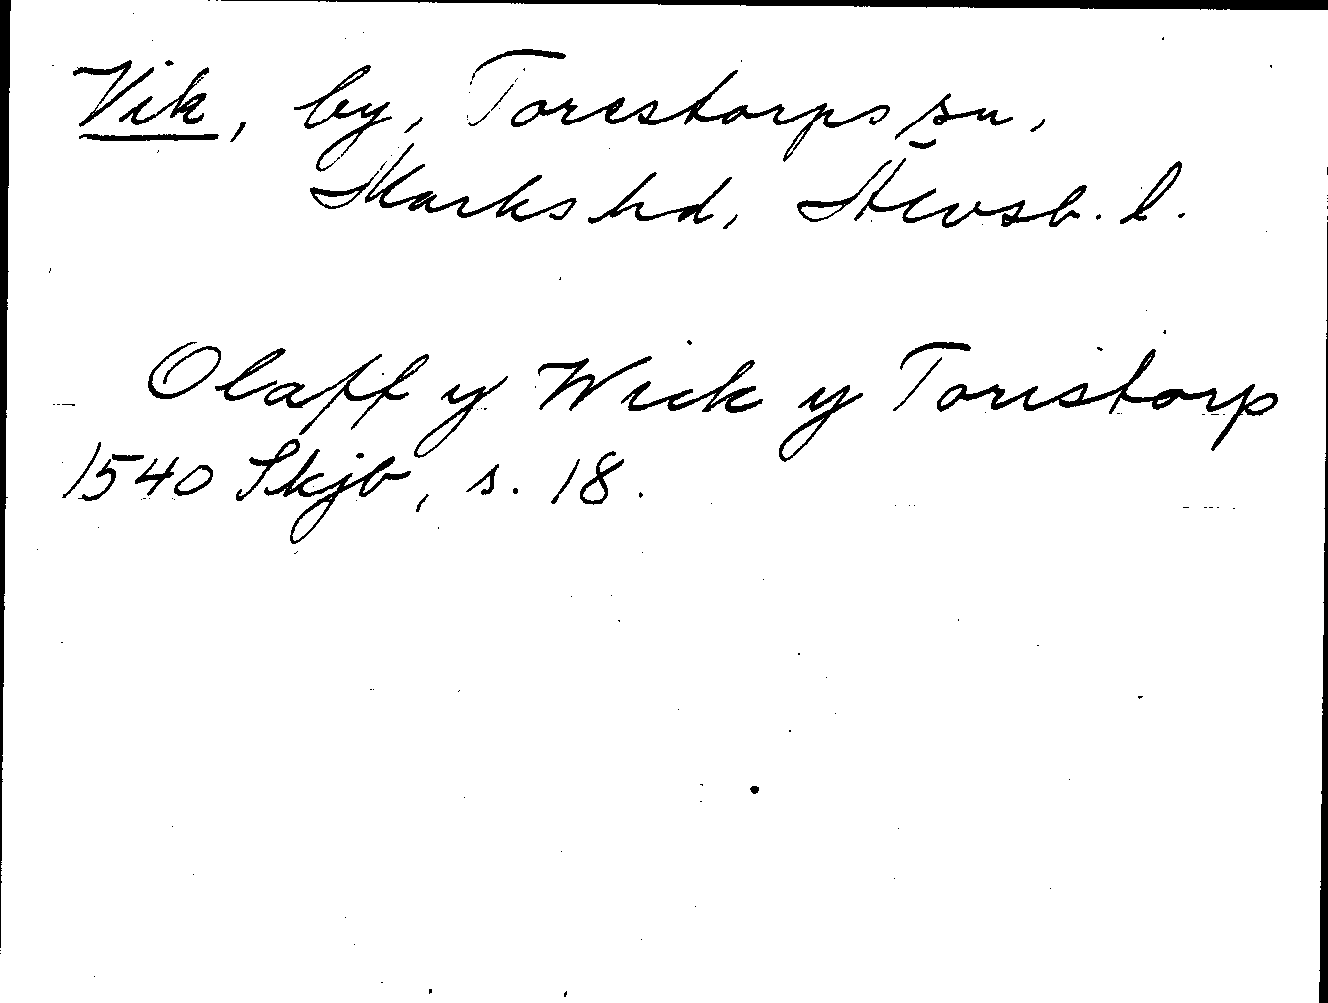 Vik, by, Torestorps sn,
Marks hd, Älvsb. l.
Olaff y Wick y Toristorp
1540 Skjb, s. 18.